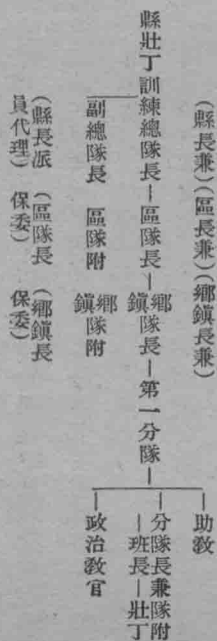 (縣長兼)(區長兼)(鄉鎮長兼)
縣壯丁訓練總隊長—區隊長—鄉鎮隊長—第一分隊—
—助教
—分隊長兼隊附
—班長—壯丁
—政治教官
副總隊長 區隊附 鄉鎮隊附
(縣長派員代理) (區隊長保委) (鄉鎮長保委)